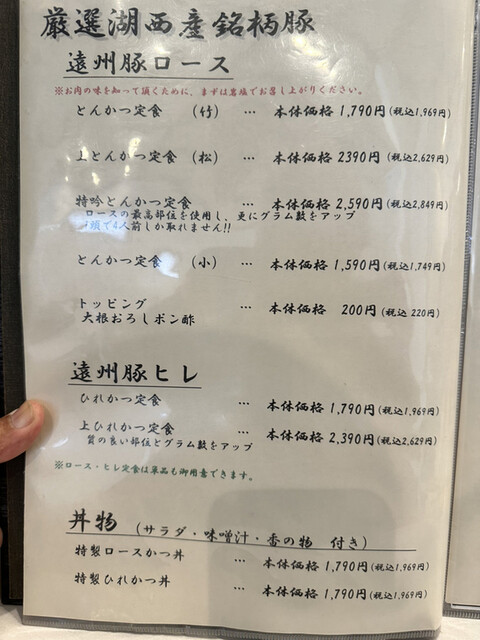 厳選湖西産銘柄豚
遠州豚ロース
※お肉の味を知って頂くために、まずは岩塩でお召し上がりください。
とんかつ定食 （竹） … 本体価格 1,790円(税込1,969円)
上とんかつ定食 （松） … 本体価格 2390円(税込2,629円)
特吟とんかつ定食 … 本体価格 2,590円(税込2,849円)
ロースの最高部位を使用し、更にグラム数をアップ
1頭で4人前しか取れません!!
とんかつ定食 （小） … 本体価格 1,590円(税込1,749円)
トッピング … 本体価格 200円(税込 220円)
大根おろしポン酢
遠州豚ヒレ
ひれかつ定食 … 本体価格 1,790円(税込1,969円)
上ひれかつ定食 … 本体価格 2,390円(税込2,629円)
質の良い部位とグラム数をアップ
※ロース・ヒレ定食は単品も御用意できます。
丼物 (サラダ・味噌汁・香の物 付き)
特製ロースかつ丼 … 本体価格 1,790円(税込1,969円)
特製ひれかつ丼 … 本体価格 1,790円(税込1,969円)